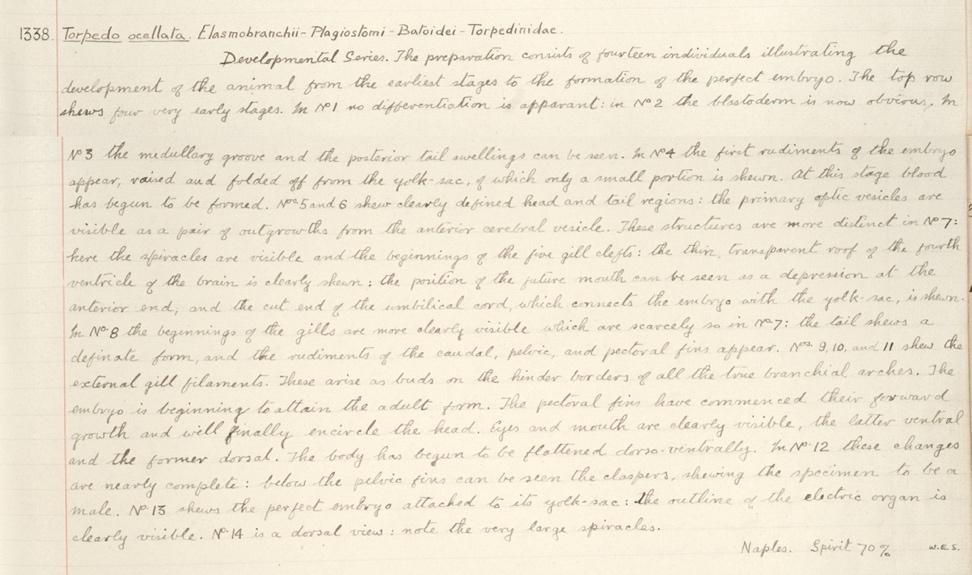 1338. Torpedo ocellata. Elasmobranchii - Plagiostomi - Batoidei - Torpedinidae.
Developmental Series. The preparation consists of fourteen individuals illustrating the
development of the animal from the earliest stages to the formation of the perfect embryo. The top row
shews four very early stages. In Nº1 no differentiation is apparant: in Nº2 the blastoderm is now obvious. In
Nº3 the medullary groove and the posterior tail swellings can be seen. In Nº4 the first rudiments of the embryo
appear, raised and folded off from the yolk-sac, of which only a small portion is shewn. At this stage blood
has begun to be formed. Nºs 5 and 6 shew clearly defined head and tail regions: the primary optic vesicles are
visible as a pair of outgrowths from the anterior cerebral vesicle. These structures are more distinct in Nº7:
here the spiracles are visible and the beginnings of the five gill clefts: the thin, transparent roof of the fourth
ventricle of the brain is clearly shewn: the position of the future mouth can be seen as a depression at the
anterior end, and the cut end of the umbilical cord, which connects the embryo with the yolk-sac, is shewn.
In Nº8 the beginnings of the gills are more clearly visible which are scarcely so in Nº7: the tail shews a
definate form, and the rudiments of the caudal, pelvic, and pectoral fins appear. Nºs. 9, 10, and 11 shew the
external gill filaments. These arise as buds on the hinder borders of all the true branchial arches. The
embryo is beginning to attain the adult form. The pectoral fins have commenced their forward
growth and will finally encircle the head. Eyes and mouth are clearly visible, the latter ventral
and the former dorsal. The body has begun to be flattened dorso-ventrally. In Nº12 these changes
are nearly complete: below the pelvic fins can be seen the claspers, shewing the specimen to be a
male. Nº13 shews the perfect embryo attached to its yolk-sac: the outline of the electric organ is
clearly visible. Nº14 is a dorsal view: note the very large spiracles.
Naples. Spirit 70% W.E.S.